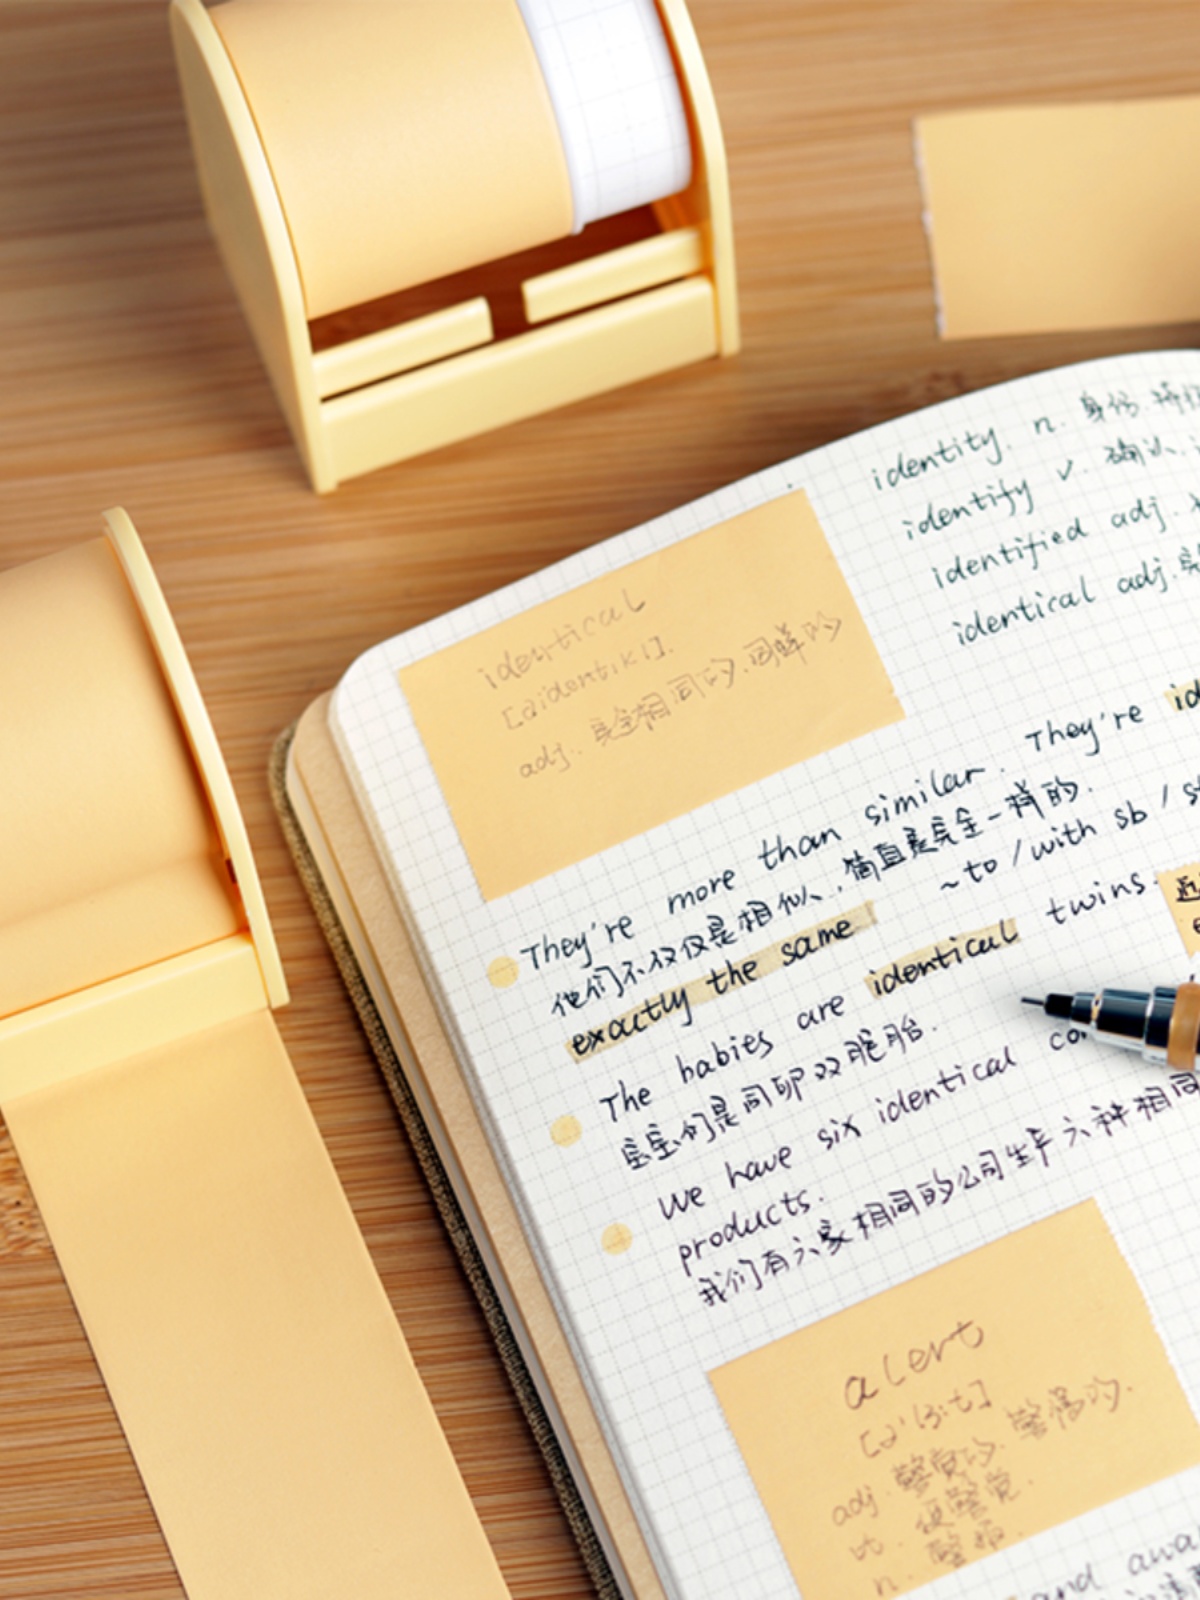 identity. n. 身份.
identify v. 确认.
identified adj.
identical adj.
identical
[aidentikl].
adj. 完全相同的.同样的
They're more than similar. They're id
他们不仅仅是相似.,简直是完全一样的.
exactly the same ~to/with sb / st
The babies are identical twins.
近
宝宝们是同卵双胞胎.
We have six identical co
products.
我们有六家相同的公司生产六种相同
alert
[ə'lɜ:t]
adj. 警觉的. 警惕的.
vt. 使警觉.
n. 警报.
and awa